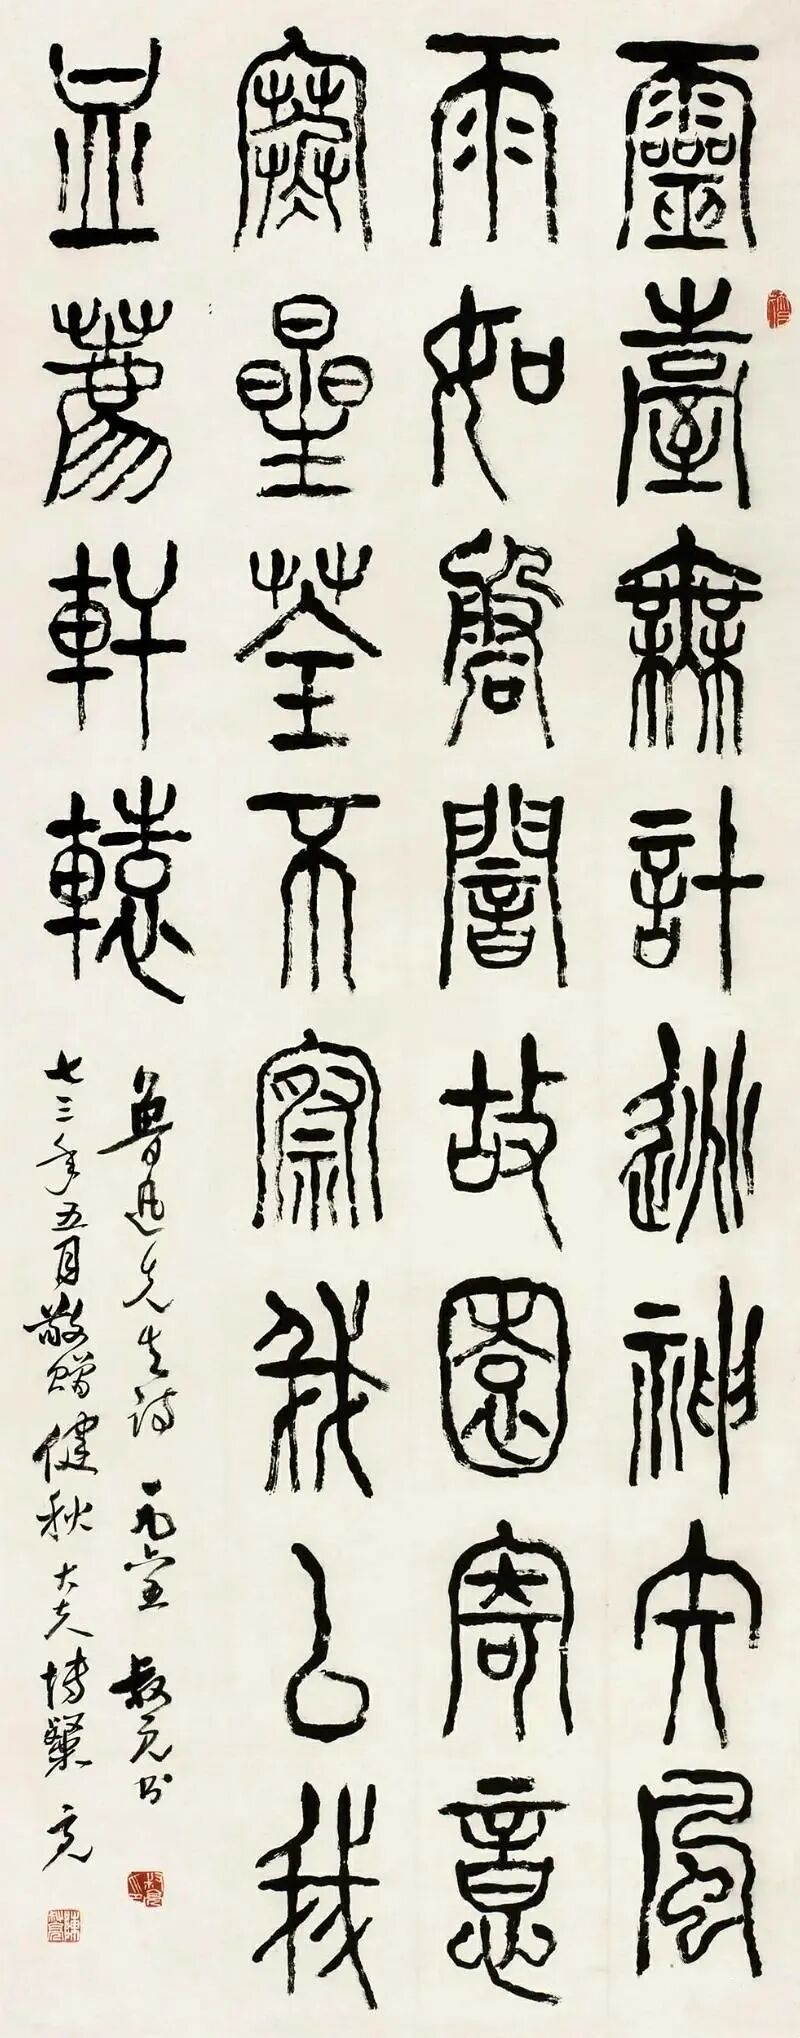 靈臺無計逃神矢風
雨如磐闇故園寄意
寒星荃不察我以我
血薦軒轅
魯迅先生诗 叔亮书
七三年五月敬赠健秋大夫博粲 亮